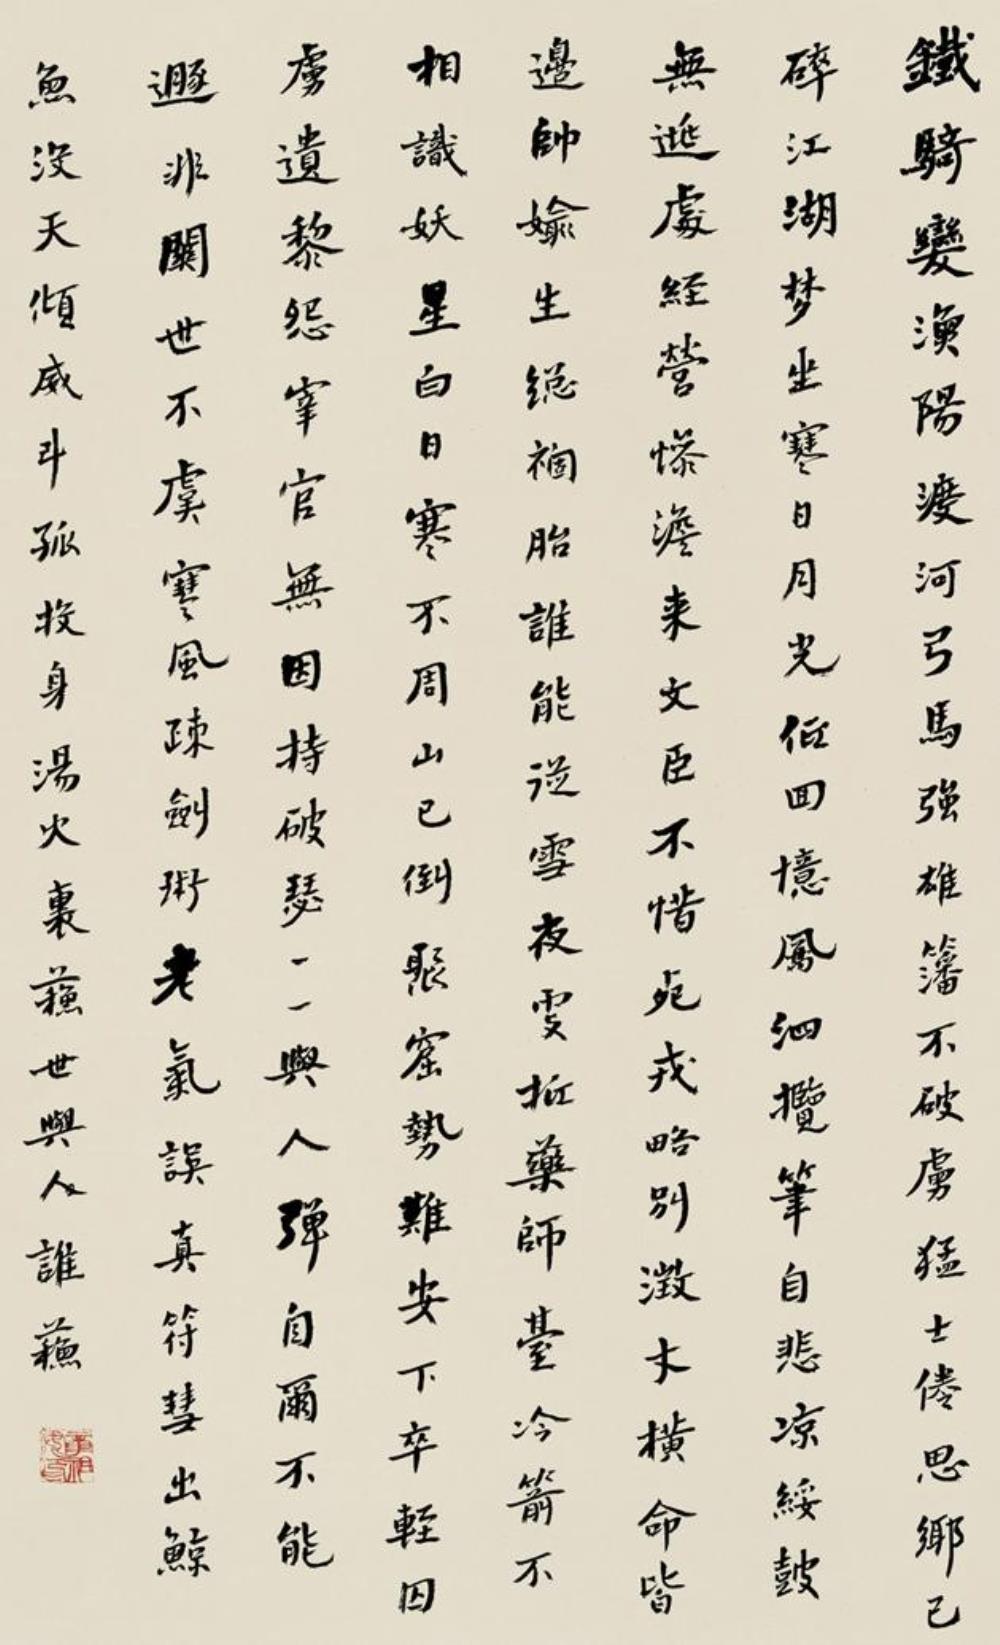 鐵騎變漁陽渡河弓馬強雄籓不破虜猛士倦思鄉已
碎江湖梦坐寒日月光低回憶鳳泗攬筆自悲凉綏鼓
無遮處經營慘澹来文臣不惜死戎略別徵才橫命皆
邊帥媮生總禍胎誰能從雪夜雯抵藥師臺冷箭不
相識妖星白日寒不周山已倒聚窟勢難安下卒輕囚
虜遺黎怨宰官無因持破瑟一一與人彈自爾不能
遯非關世不虞寒風疎劍術老氣誤真符彗出鯨
魚没天傾威斗孤投身湯火裏蘓世與人誰蘓